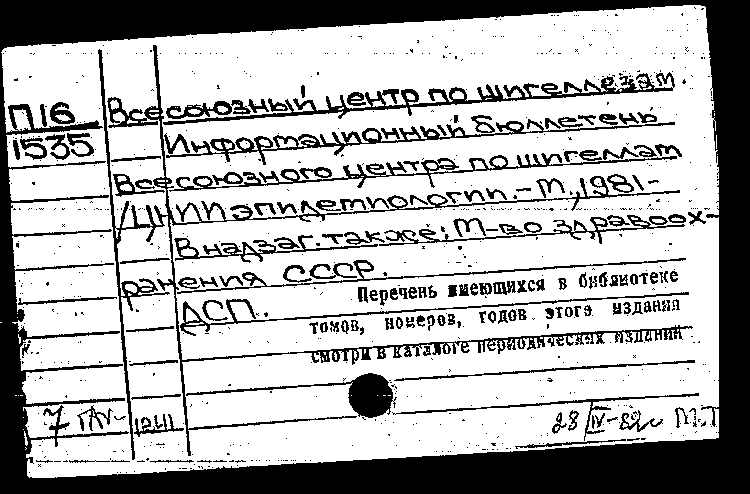 П16 Всесоюзный центр по шигеллезам.
1535 Информационный бюллетень
Всесоюзного центра по шигеллам
/ЦНИИэпидемиологии. – М., 1981-
В надзаг. также: М-во здравоох-
ранения СССР.
ДСП.
Перечень имеющихся в библиотеке
томов, номеров, годов этого издания
смотри в каталоге периодических изданий
7
28/IV-82 М.Т